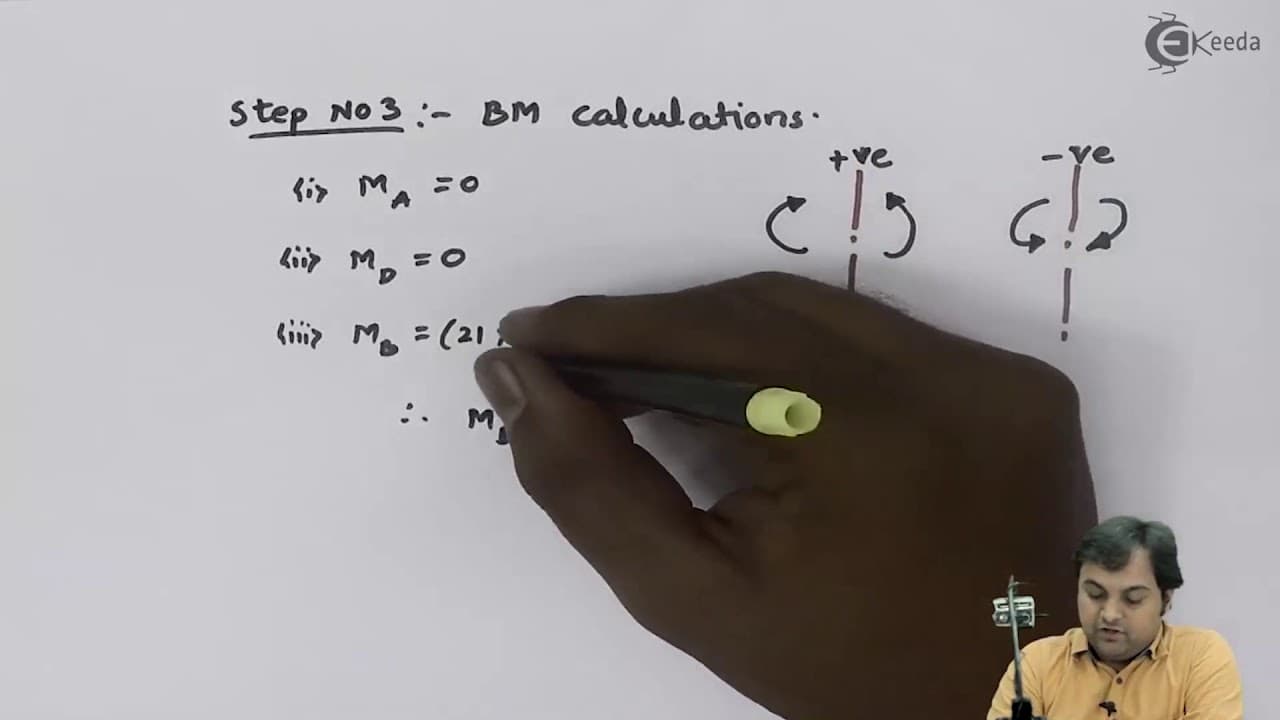 EKeeda
Step No 3 :- BM calculations.
+ve
-ve
(i) M_A = 0
(ii) M_D = 0
(iii) M_B = (21
∴ M